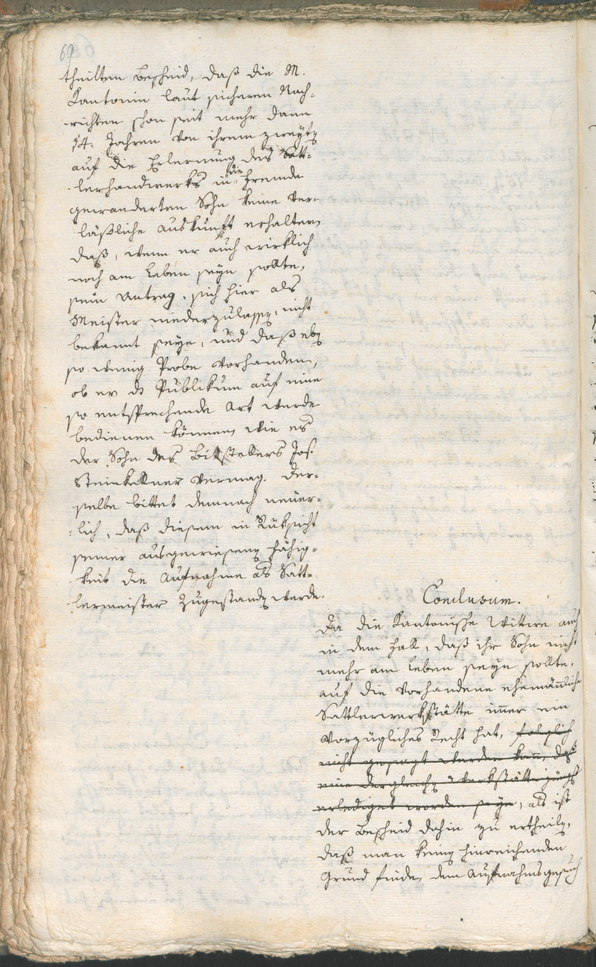 69
theilten Bescheid, daß die M.
Kantorin laut sicheren Nach-
richten schon seit mehr dann
14. Jahren von ihrem zweyten
auf die Erlernung des Satt-
lerhandwerks in die Fremde
gewanderten Sohn keine ver-
läßliche Auskunft erhalten,
daß, wenn er auch wirklich
noch am Leben seyn sollte,
sein Antrag, sich hier als
Meister niederzulassen, nicht
bekannt seye, und daß eben
so wenig Probe vorhanden,
ob er ds Publikum auf eine
so entsprechende Art werde
bedienen können, wie es
der Sohn des Bittstellers Jos.
Steinkellner vermag. Der-
selbe bittet demnach neuer-
lich, daß diesem in Rücksicht
seiner ausgewiesenen Fähig-
keit die Aufnahme als Satt-
lermeister zugestanden werde.
Conclusum.
Da die Kantorische Wittwe auch
in dem Fall, daß ihr Sohn nicht
mehr am Leben seyn sollte,
auf die vorhandene ehemännliche
Sattlerwerkstätte immer ein
vorzügliches Recht hat, folglich
nicht gesagt werden kann, daß
eine dergleichen Werkstätte
erlediget worden seye, als ist
der Bescheid dahin zu ertheilen,
daß man keinen hinreichenden
Grund finde, dem Aufnahmsgesuch